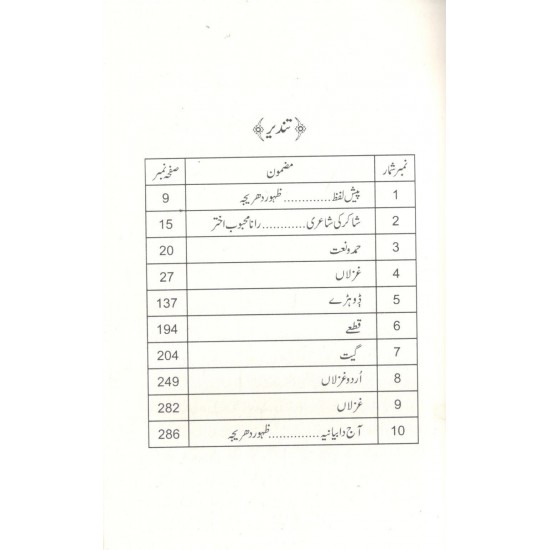 تندیر
نمبر شمار مضمون صفحہ نمبر
1 پیش لفظ ............. ظہور دھریجہ 9
2 شاکر کی شاعری ........... رانا محبوب اختر 15
3 حمد و نعت 20
4 غزلاں 27
5 ڈوہڑے 137
6 قطعے 194
7 گیت 204
8 اُردو غزلاں 249
9 غزلاں 282
10 آج دا بیانیہ ............. ظہور دھریجہ 286